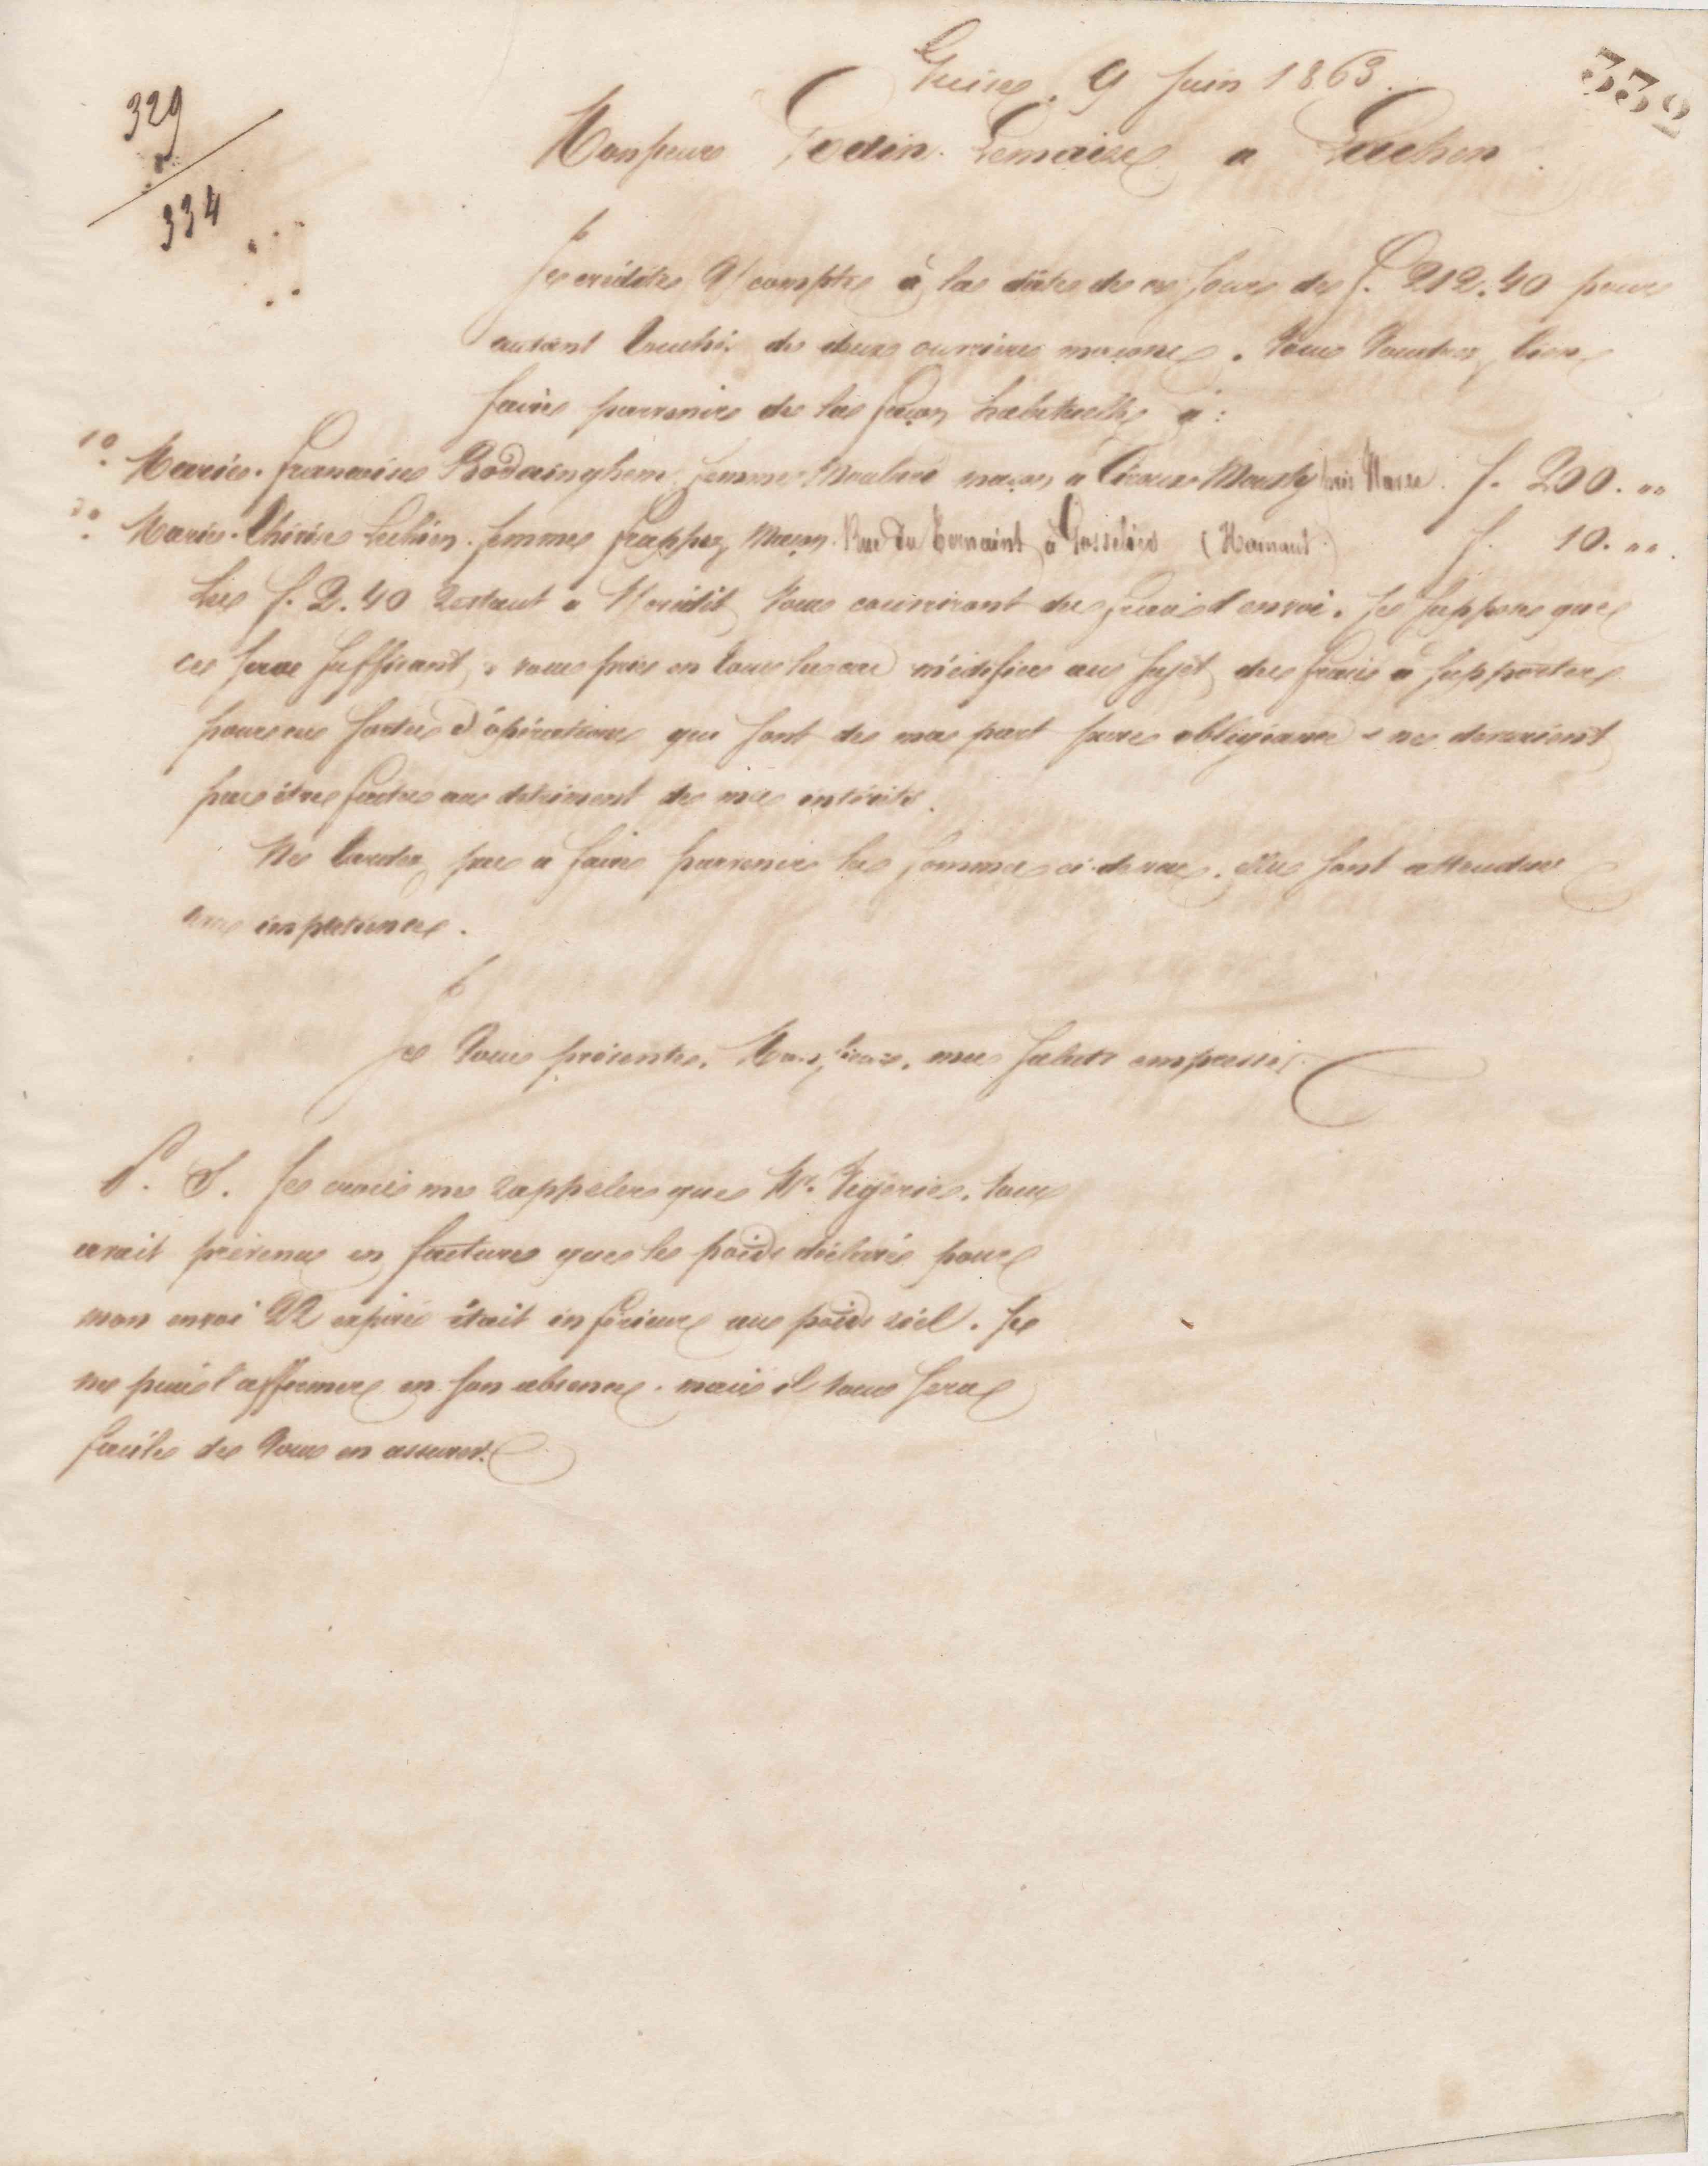 332
329
334
Guise, 9 Juin 1863.
Monsieur Godin-Lemaire a Laeken.
Je crédite V/ compte à la date de ce jour de f. 212.40 pour
autant touché de deux ouvriers maçons. Vous voudrez bien
faire parvenir de la façon habituelle à :
1o. Marie-Françoise femme maçon a f. 200. "
2o. Marie-Thérèse femme Frappez, maçon. Rue du à Gosselies (Hainaut) f. 10. "
Les f. 2.40 restant a V/ crédit vous couvriront des frais d'envoi. Je suppose que
ce sera suffisant, vous prie en tous les cas m'édifier au sujet des frais à supporter
pour ces sortes d'opérations qui sont de ma part pure obligeance & ne devraient
pas être faites au detriment de mes intérêts.
Ne tardez pas a faire parvenir les sommes ci-dessus. Elles sont attendues
avec impatience.
Je vous présente, Monsieur, mes saluts empressés.
P. S. Je crois me rappeler que Mr. vous
avait prévenu en facture que le poids déclaré pour
mon envoi 22 expiré était inférieur au poids réel. Je
ne puis l'affirmer en son absence. mais il vous sera
facile de vous en assurer.